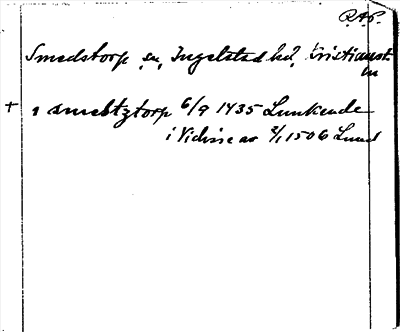 R.A.P.
Smedstorp sn, Ingelstad hd, Kristianst.
län
+ i smebtztorp 6/9 1435 Lunkende
i Vidisse av 2/1 1506 Lund